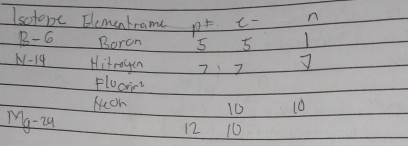 Isotope Element name p+ e- n
B-6 Boron 5 5 1
N-14 Nitrogen 7 7 7
Fluorine
Neon 10 10
Mg-24 12 10